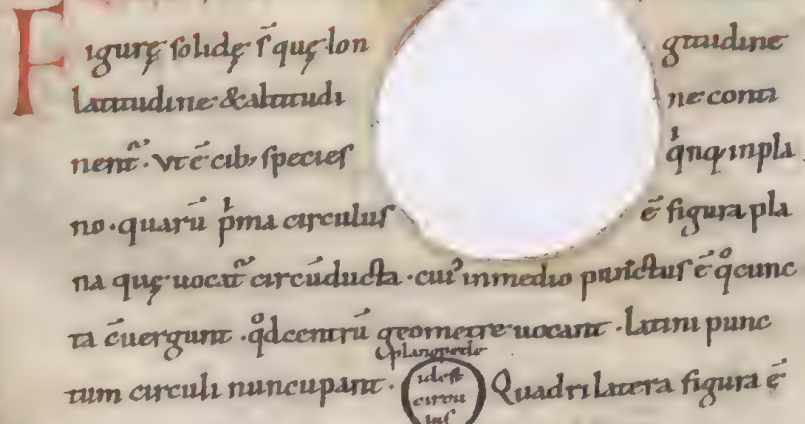 Figurę solidę s̄ quę lon gitudine
latitudine & altitudi ne conti
nent̄ · Vt ē cib; species qͥnq; inpla
no · quarū pͥma circulus ē figura pla
na quę uocat̄ circūducta · cuiꝰ in medio punctus ē qͦ cunc
ta c̄uergunt · qͦd centrū geometre uocant · latini punc
tum circuli nuncupant · Quadrilatera figura ē
idest
circu
lus